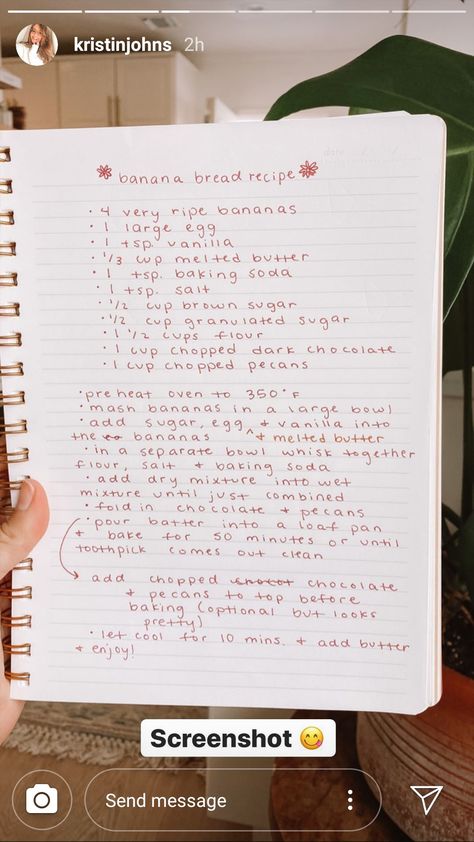 kristinjohns 2h
banana bread recipe
• 4 very ripe bananas
• 1 large egg
• 1 tsp. vanilla
• 1/3 cup melted butter
• 1 tsp. baking soda
• 1 tsp. salt
• 1/2 cup brown sugar
• 1/2 cup granulated sugar
• 1 1/2 cups flour
• 1 cup chopped dark chocolate
• 1 cup chopped pecans
• preheat oven to 350°F
• mash bananas in a large bowl
• add sugar, egg, + vanilla into
the bananas ^ + melted butter
• in a separate bowl whisk together
flour, salt + baking soda
• add dry mixture into wet
mixture until just combined
• fold in chocolate + pecans
• pour batter into a loaf pan
+ bake for 50 minutes or until
toothpick comes out clean
add chopped chocolate
+ pecans to top before
baking (optional but looks
pretty)
• let cool for 10 mins. + add butter
+ enjoy!
Screenshot 😋
Send message